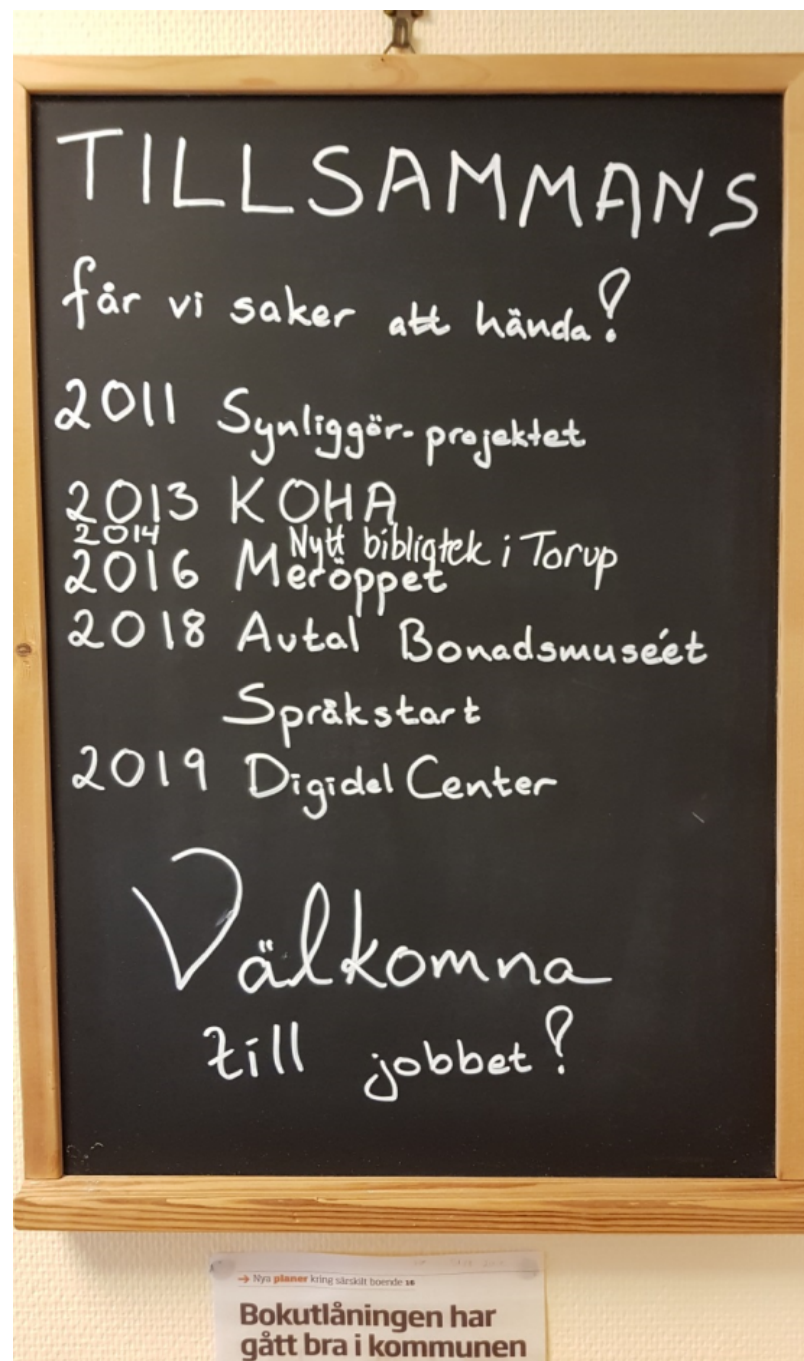 TILLSAMMANS
får vi saker att hända!
2011 Synliggör-projektet
2013 KOHA
2014 Nytt bibliotek i Torup
2016 Meröppet
2018 Avtal Bonadsmuséet
Språkstart
2019 Digidel Center
Välkomna
till jobbet!
→ Nya planer kring särskilt boende 16
Bokutlåningen har
gått bra i kommunen